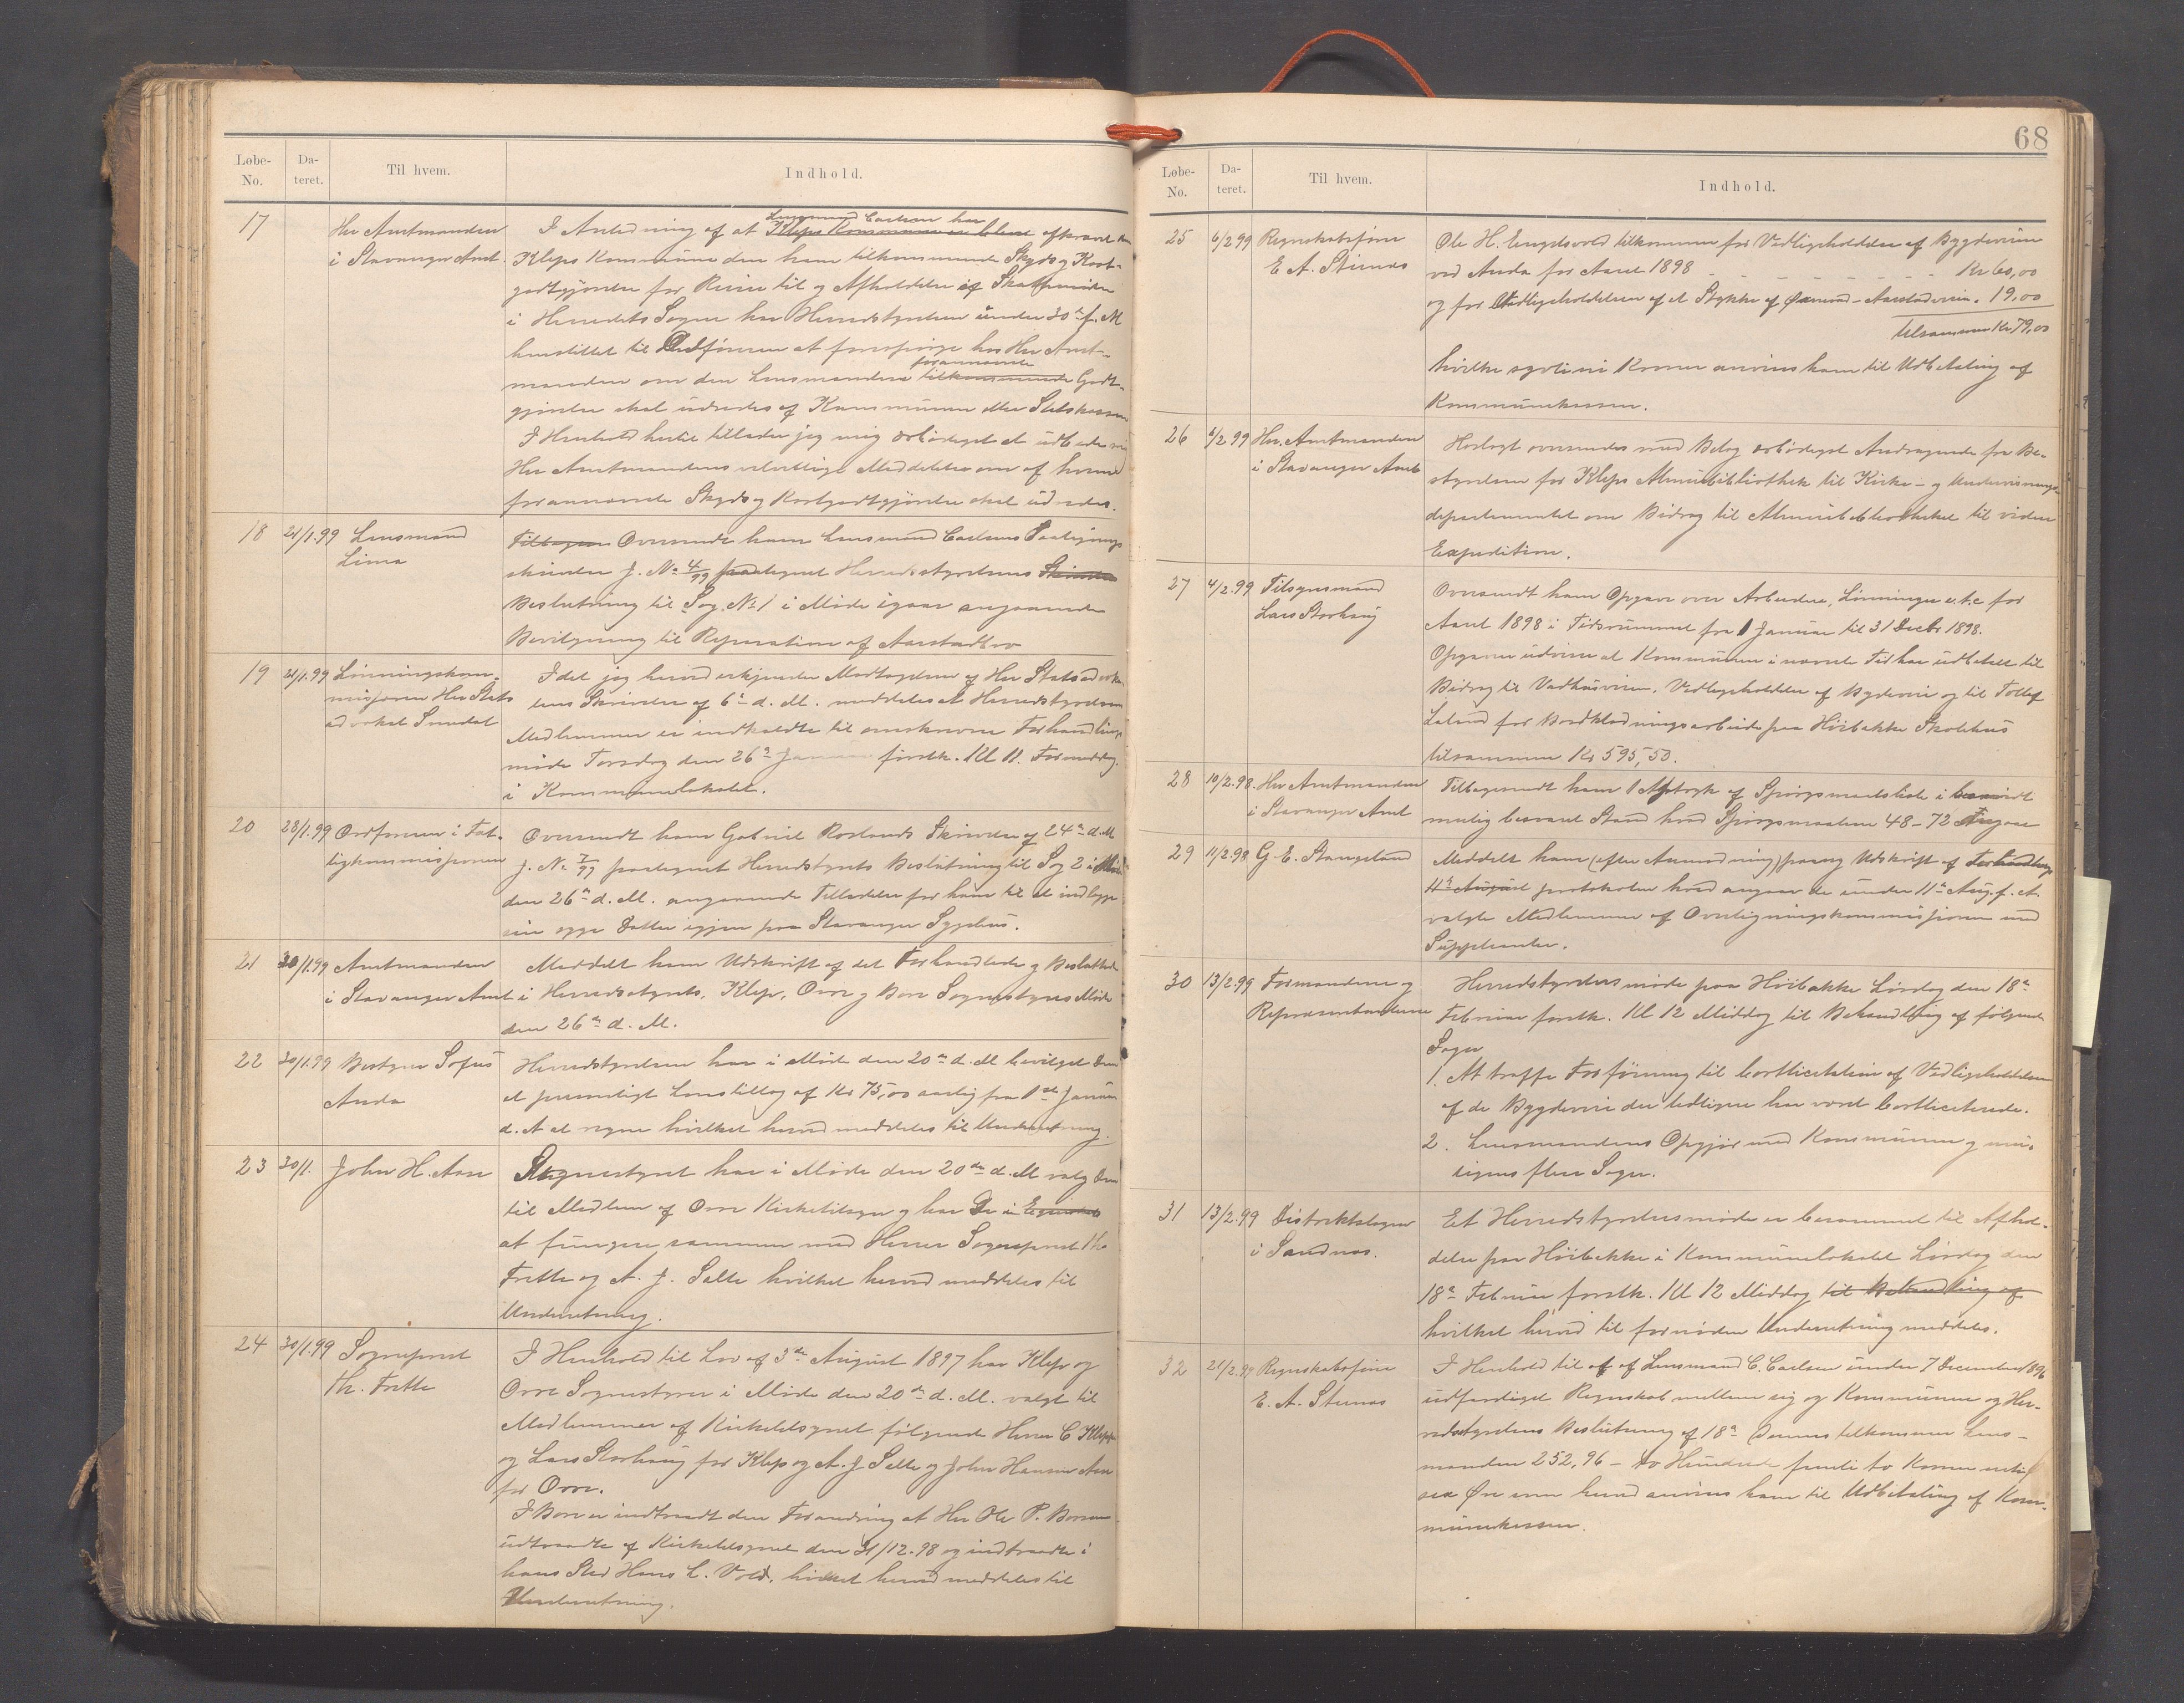 Løbe-No. Da-teret. Til hvem. Indhold.
17 Hr Amtmanden i Stavanger Amt.
I Anledning af at Kleps Kommune er bleve Lensmand Carlsen har afkrævet
Kleps Kommune den ham tilkommende Skyds og Kost-
godtgjørelse for Reiser til og Afholdelse af Skattemøder
i Herredets Sogne har Herredstyrelsen under 30te f. M
henstillet til Ordføreren at forespørge hos Hr Amt-
manden om den Lensmanden tilkommende forannævnte Godt-
gjørelse skal udredes af Kommunen eller Statskassen
I Henhold hertil tillader jeg mig ærbødigst at udbede mig
Hr Amtmandens velvillige Meddelelse om af hvem
forannævnte Skyds og Kostgodtgjørelse skal udredes.
18 21/1.99 Lensmand Lima
Tilbagesen Oversendt ham Lensmand Carlsens Paategnings
skrivelse J. No 4/99 paategnet Herredsstyrelsens Skrivelse
Beslutning til Sag No 1 i Møde igaar angaaende
Bevilgning til Reparation af Aarstadbro
19 21/1.99 Lønningskom-
misjonen Hr Stats
advokat Smedal
Idet jeg herved erkjender Modtagelsen af Hr Statsadvoka-
tens Skrivelse af 6te d. M. meddeles at Herredstyrelsens
Medlemmer er indkaldte til omskrevne Forhandlings
møde Torsdag den 26de Januar førstk. Kl 11 Formiddag.
i Kommunelokalet.
20 28/1.99 Ordføreren i Fat-
tigkommissionen
Oversendt ham Gabriel Roslands Skrivelse af 24de d. M
J. No 7/99 paategnet Herredstyrets Beslutning til Sag 2 i Møde
den 26de d. M. angaaende Tilladelse for ham til at indlægge
sin syge Datter igjen paa Stavanger Sygehus.
21 30/1.99 Amtmanden
i Stavanger Amt
Meddelt ham Udskrift af det Forhandlede og Besluttede
i Herredsstyrets, Klep, Orre og Bore Sognestyres Møde
den 26de d. M.
22 30/1.99 Bestyrer Sofus
Anda
Herredstyrelsen har i Møde den 20de d. M bevilget Dem
et personligt Lønstillæg af Kr 75,00 aarlig fra 1ste Januar
d. A at regne hvilket herved meddeles til Underretning.
23 30/1. John H. Aase
Sognestyret har i Møde den 20de d. M valg Dem
til Medlem af Orre Kirketilsyn og har De i Egenskab
at fungere sammen med Herrer Sogneprest Th.
Frette og A. J. Salte hvilket herved meddeles til
Underretning.
24 30/1.99 Sogneprest
Th. Frette
I Henhold til Lov af 3de August 1897 har Klep og
Orre Sognestyrer i Møde den 20de d. M. valgt til
Medlemmer af Kirketilsynet følgende Herrer C Kleppe
og Lars Storhaug for Klep og A. J Salte og John Hansen Aase
for Orre.
I Bore er indtraadt den Forandring at Hr Ole P. Borsen
udtraadte af Kirketilsynet den 31/12.98 og indtraadte i
hans Sted Hans L. Vold, hvilket herved meddeles til
Underretning.
68
Løbe-No. Da-teret. Til hvem. Indhold.
25 6/2 99 Regnskabsfører
E A. Stimnæs
Ole H. Engelsvold tilkommer for Vedligeholdelse af Bygdeveien
ved Anda for Aaret 1898 - - - - - - - - - Kr 60,00
og for Vedligeholdelsen af et Stykke af - Aarstadveien. 19,00
tilsammen Kr 79,00
hvilke sytti ni Kroner anvises ham til Udbetaling af
Kommunekassen.
26 6/2 99 Hr. Amtmanden
i Stavanger Amt
Hoslagt oversendes med Bilag ærbødigst Andragende fra Be-
styrelsen for Kleps Almuebibliothek til Kirke- og Undervisnings-
departementet om Bidrag til Almuebibliotheket til videre
Expedition.
27 4/2.99 Tilsynsmand
Lars Storhaug
Oversendt ham Opgave over Arbeidere, Lønninger e.t.c for
Aaret 1898 i Tidsrummet fra 1 Januar til 31 Decbr 1898.
Opgaven udviser at Kommunen i nævnte Tid har udbetalt til
Bidrag til Vadhusveien, Vedligeholdelse af Bygdeveie og til Tollef
Laland for Bordklædningsarbeide paa Høibakke Skolehus
tilsammen Kr 595,50.
28 10/2.98. Hr Amtmanden
i Stavanger Amt
Tilbagesendt ham 1 Aftryk af Spørgsmaalsliste i
mulig besvaret Stand hvad Spørgsmaalene 48-72 Angaar
29 11/2.98 G. E. Stangeland
Meddelt ham (efter Anmodning) Udskrift af Forhandlings
11te August protokolen hvad angaar de under 11te Aug. f. A.
valgte Medlemmer af Overligningskommissionen med
Suppleanter.
30 13/2.99 Formændene og
Repræsentanterne
Herredstyrelsesmøde paa Høibakke Lørdag den 18de
Februar førstk. Kl 12 Middag til Behandling af følgende
Sager
1. At træffe Forføining til bortlicitation af Vedligeholdelsen
af de Bygdeveie der tidligere har været bortliciterede.
2. Lensmandens Opgjør med Kommunen og mu-
ligens flere Sager.
31 13/2.99 Distriktslægen
i Sandnæs.
Et Herredstyrelsesmøde er berammet til Afhol-
delse paa Høibakke i Kommunelokalet Lørdag den
18de Februar førstk. Kl 12 Middag til Behandling af
hvilket herved til fornøden Underretning meddeles.
32 21/2.99 Regnskabsfører
E. A. Stimnæs
I Henhold til af Lensmand C. Carlsen under 7 December 1896
udfærdiget Regnskab mellem sig og Kommunen og Her-
redsstyrelsens Beslutning af 18de Dennes tilkommer Lens-
manden 252,96 - to Hundrede femti to Kroner nitti
sex Øre som herved anvises ham til Udbetaling af Kom-
munekassen.